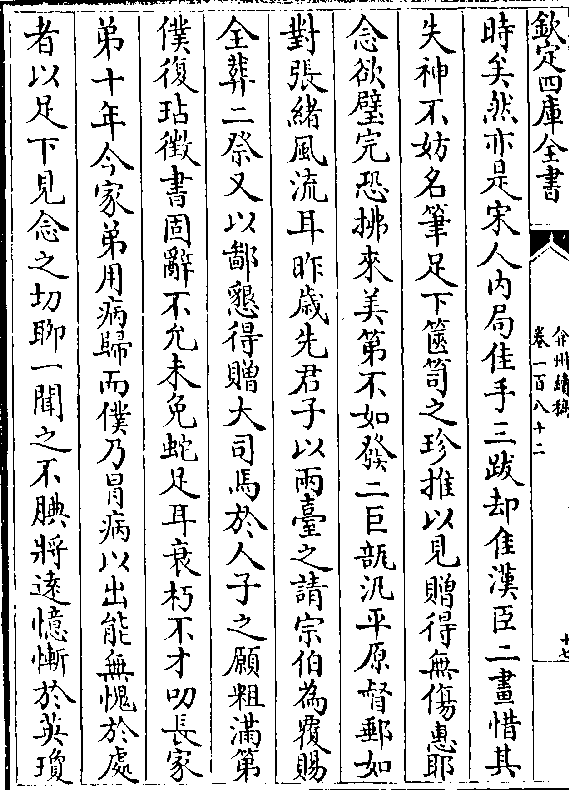 欽定四庫全書
弇州續稿
卷一百八十二
十七
時矣然亦是宋人內局佳手三跋却佳漢臣二畫惜其
失神不妨名筆足下篋笥之珍推以見贈得無傷惠耶
念欲璧完恐拂來美第不如發二巨瓿汎平原督郵如
對張緒風流耳昨歲先君子以兩臺之請宗伯為覆賜
全葬二祭又以鄙懇得贈大司馬於人子之願粗滿第
僕復玷徵書固辭不允未免蛇足耳衰朽不才叨長家
弟十年今家弟用病歸而僕乃冒病以出能無愧於處
者以足下見念之切聊一聞之不腆將遠憶慚於英瓊